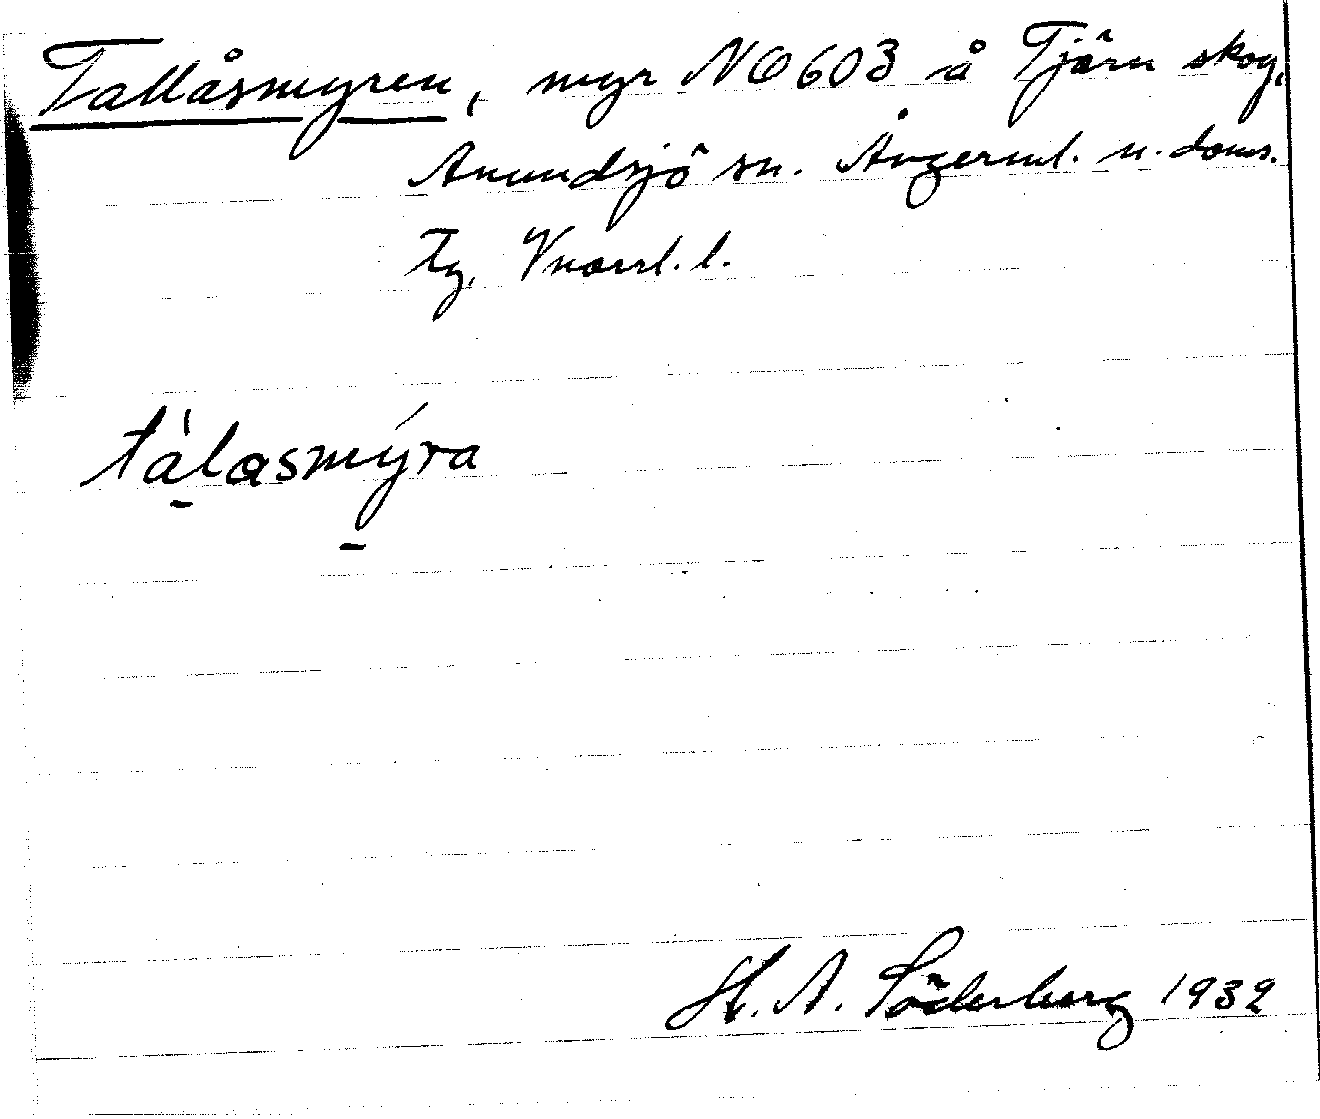 Tallåsmyren, myr NO 603 å Tjärn skog,
Anundsjö sn. Ångerml. n. doms.
Tg, Vnorrl. l.
tàlasmýra
H. A. Söderberg 1932